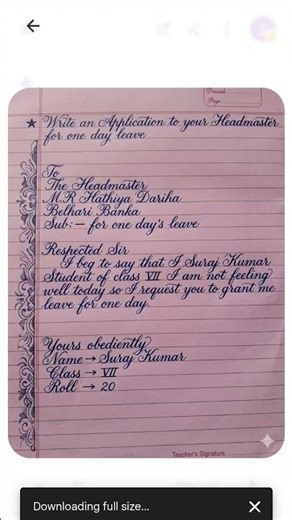 Demand
Page
★ Write an Application to your Headmaster
for one day leave
To
The Headmaster
M.R Hathiya Dariha
Belhari Banka
Sub:— for one day's leave
Respected Sir
I beg to say that I Suraj Kumar
Student of class VII I am not feeling
well today so I request you to grant me
leave for one day.
Yours obediently
Name → Suraj Kumar
Class → VII
Roll → 20
Teacher's Signature
Downloading full size...